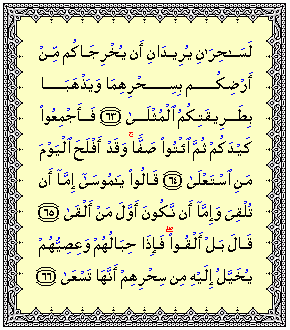 لَسَـٰحِرَٰنِ يُرِيدَانِ أَن يُخْرِجَاكُم مِّنْ
أَرْضِكُم بِسِحْرِهِمَا وَيَذْهَبَا
بِطَرِيقَتِكُمُ ٱلْمُثْلَىٰ ٦٣ فَأَجْمِعُوا۟
كَيْدَكُمْ ثُمَّ ٱئْتُوا۟ صَفًّا ۚ وَقَدْ أَفْلَحَ ٱلْيَوْمَ
مَنِ ٱسْتَعْلَىٰ ٦٤ قَالُوا۟ يَـٰمُوسَىٰٓ إِمَّآ أَن
تُلْقِىَ وَإِمَّآ أَن نَّكُونَ أَوَّلَ مَنْ أَلْقَىٰ ٦٥
قَالَ بَلْ أَلْقُوا۟ ۖ فَإِذَا حِبَالُهُمْ وَعِصِيُّهُمْ
يُخَيَّلُ إِلَيْهِ مِن سِحْرِهِمْ أَنَّهَا تَسْعَىٰ ٦٦